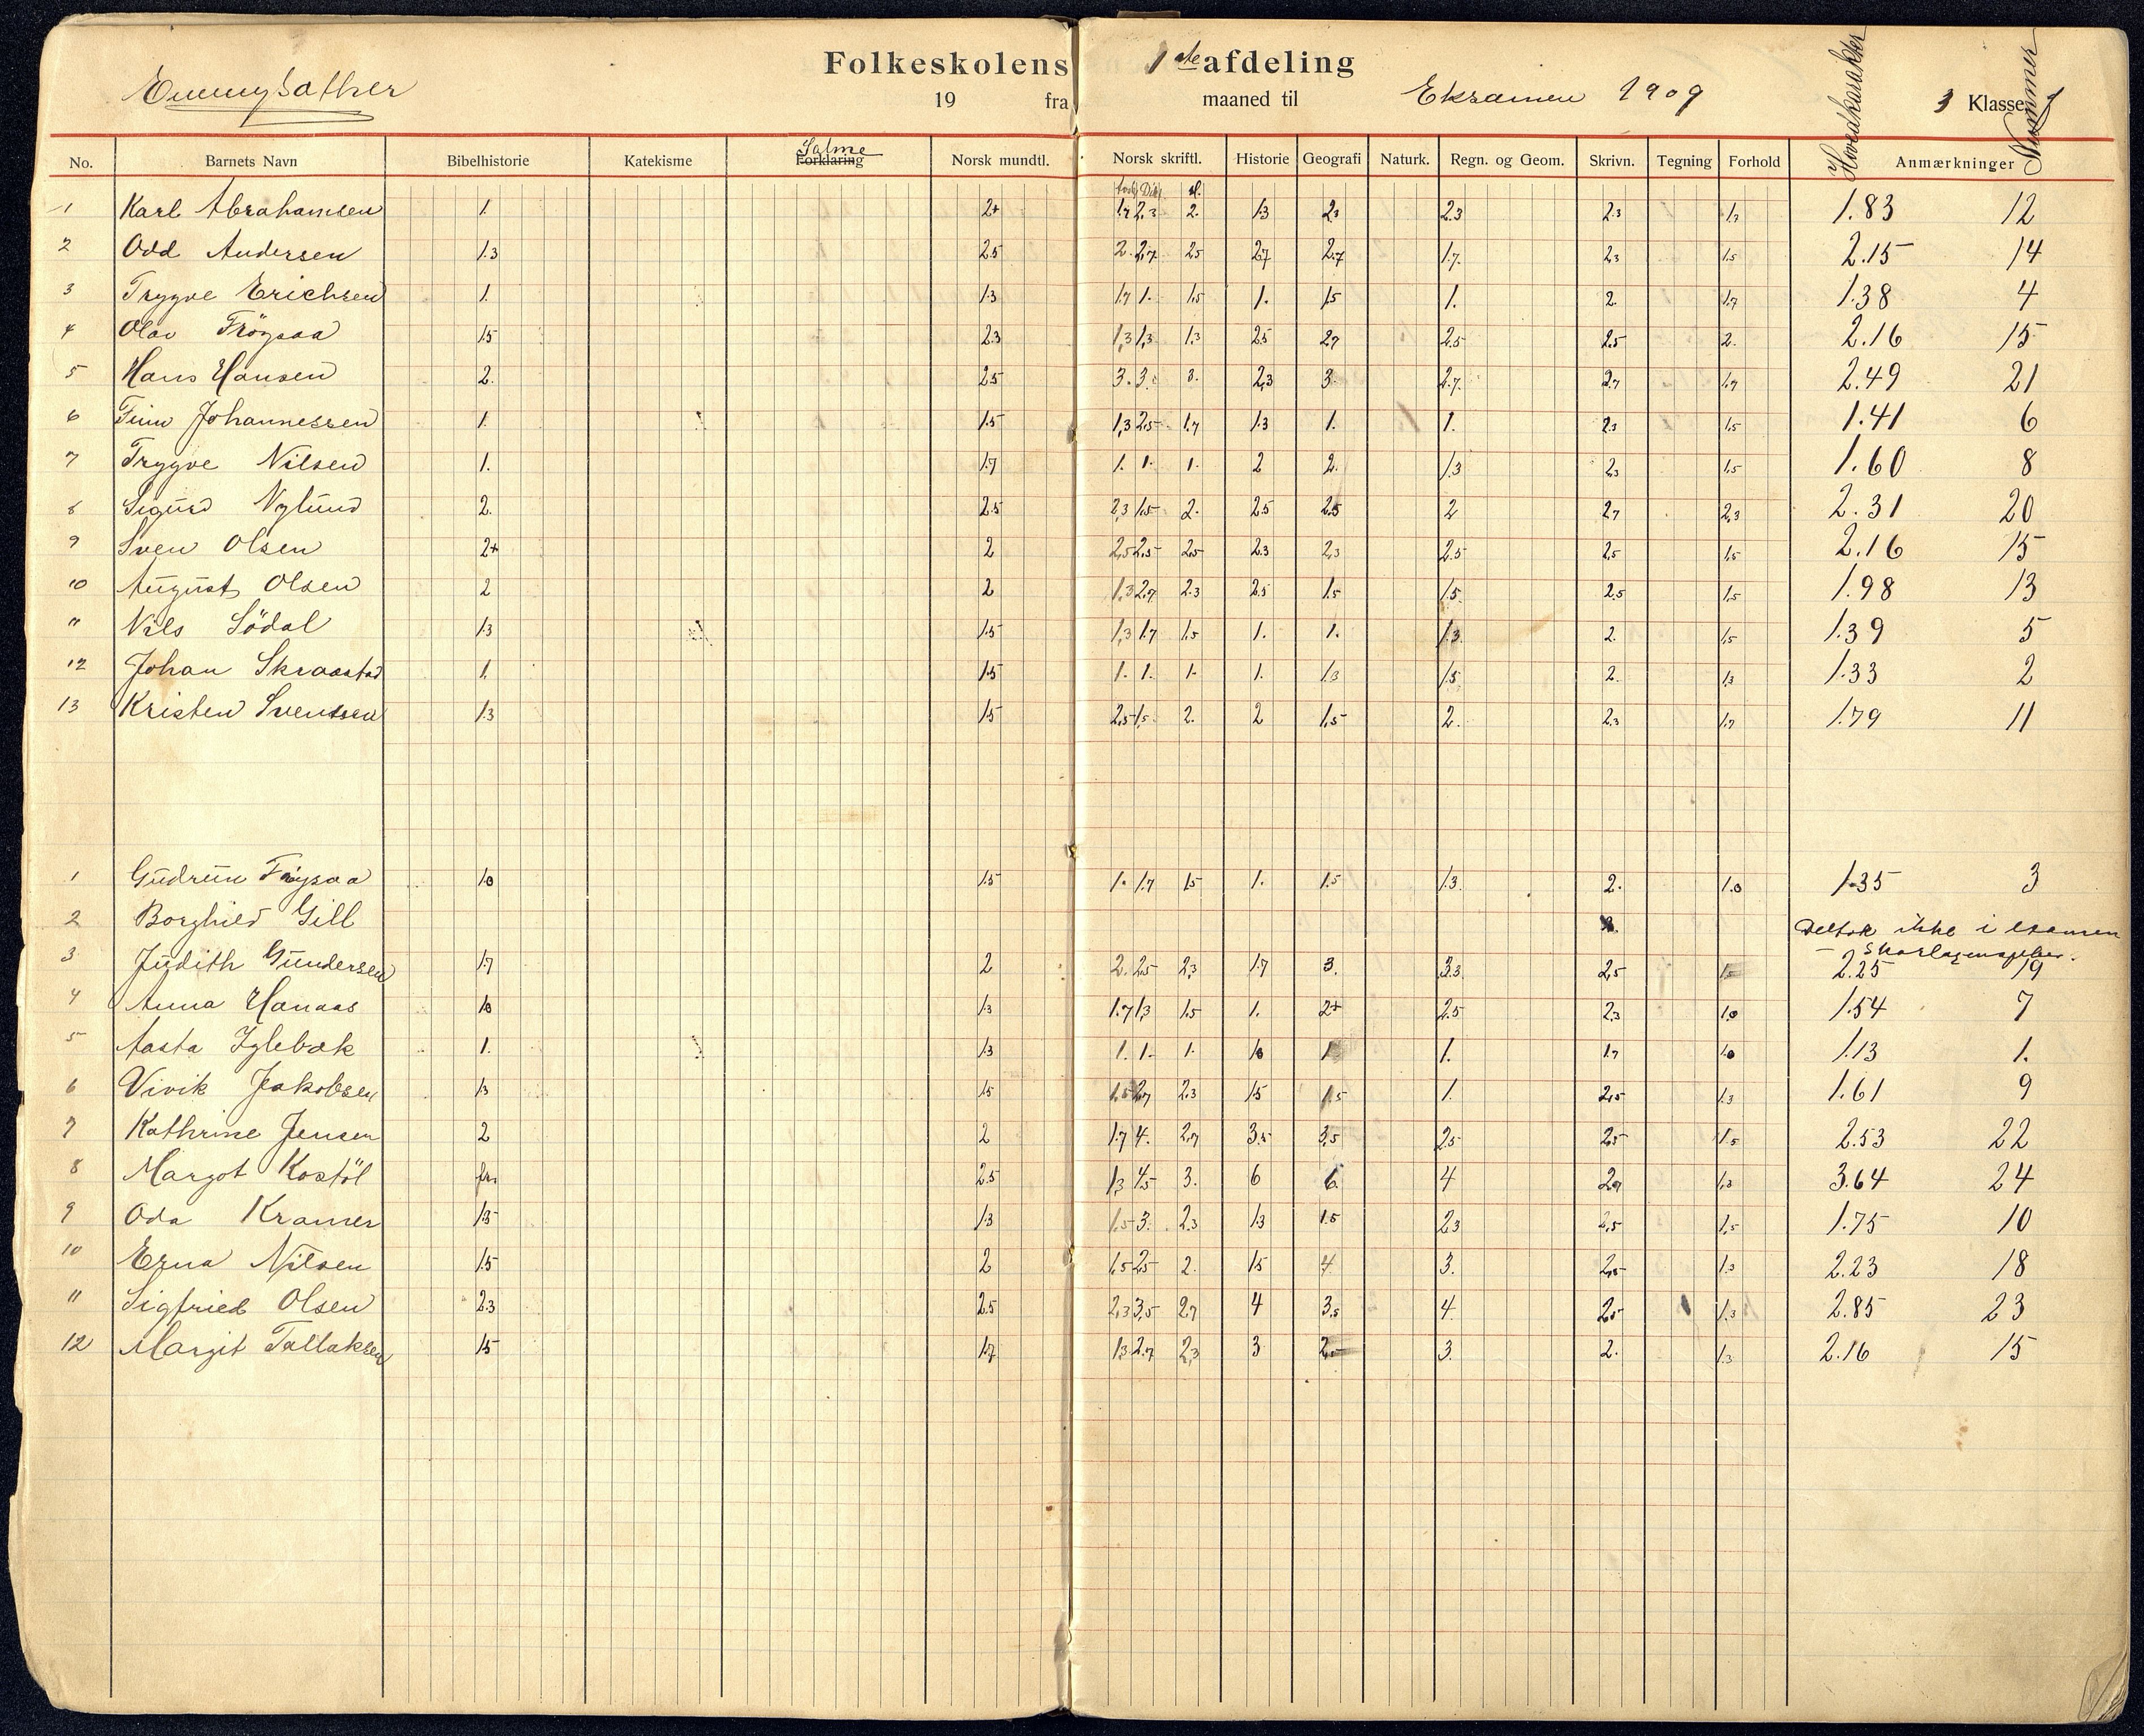 Folkeskolens 1ste afdeling
Emmy Sather
19 fra maaned til Eksamen 1909 3 Klasse
No. Barnets Navn Bibelhistorie Katekisme Forklaring Salme Norsk mundtl. Norsk skriftl. Historie Geografi Naturk. Regn. og Geom. Skrivn. Tegning Forhold Hovedkarakter Anmærkninger Nummer
1 Karl Abrahamsen 1. 2+ 1.7 2.3 2. 1.3 2.3 2.3 2.3 1.3 1.83 12
2 Odd Andersen 1.3 2.5 2. 2.7 2.5 2.7 2.7 1.7. 2.3 1.5 2.15 14
3 Trygve Erichsen 1. 1.3 1.7 1. 1.5 1. 1.5 1. 2. 1.7 1.38 4
4 Olav Tröysaa 1.5 2.3 1.3 1.3 1.3 2.5 2.7 2.5 2.5 2. 2.16 15
5 Hans Hansen 2. 2.5 3. 3. 3. 2.3 3. 2.7. 2.7 1.7 2.49 21
6 Finn Johannessen 1. 1.5 1.3 2.5 1.7 1.3 1. 1. 2.3 1.5 1.41 6
7 Trygve Nilsen 1. 1.7 1. 1. 1. 2 2. 1.3 2.3 1.5 1.60 8
8 Sigurd Nylund 2. 2.5 2.3 1.5 2. 2.5 2.5 2 2.7 2.3 2.31 20
9 Sven Olsen 2+ 2 2.5 2.5 2.5 2.3 2.3 2.5 2.5 1.5 2.16 15
10 August Olsen 2 2 1.3 2.7 2.3 2.5 1.5 1.5. 2.5 1.5 1.98 13
11 Nils Södal 1.3 1.5 1.3 1.7 1.5 1. 1. 1.3. 2. 1.5 1.39 5
12 Johan Skraastad 1. 1.5 1. 1. 1. 1. 1.3 1.5 2. 1.3 1.33 2
13 Kristen Svendsen 1.3 1.5 2.5 1.5 2. 2 1.5 2. 2.3 1.7 1.79 11
1 Gudrun Tröysaa 1.0 1.5 1. 1.7 1.5 1. 1.5 1.3. 2. 1.0 1.35 3
2 Borghild Gill Deltok ikke i examen
3 Judith Gundersen 1.7 2 2. 2.5 2.3 1.7 3. 3.3. 2.5 2.25 19
4 Anna Hanaas 1.0 1.3 1.7 1.3 1.5 1. 2+ 2.5 2.3 1.0 1.54 7
5 Aasta Iglebæk 1. 1.3 1. 1. 1. 1.0 1 1. 1.7 1.0 1.13 1.
6 Vivik Jakobsen 1.3 1.5 1.5 2.7 2.3 1.5 1.5 1. 2.5 1.3 1.61 9
7 Kathrine Jensen 2 2 1.7 4. 2.7 3.5 3.5 2.5 2.5 1.5 2.53 22
8 Margot Kostöl 2.5 1.3 4.5 3. 6 6. 4 2.7 1.3 3.64 24
9 Oda Kramer 1.5 1.3 1.5 3. 2.3 1.3 1.5 2.3 2.5 1.5 1.75 10
10 Erna Nilsen 1.5 2 1.5 2.5 2. 1.5 4 3. 2.5 1.3 2.23 18
11 Sigfried Olsen 2.3 2.5 2.3 3.5 2.7 4 3.5 4. 2.5 1.3 2.85 23
12 Margit Tallaksen 1.5 1.7 1.3 2.7 2.3 3 2. 3. 2. 1.3 2.16 15